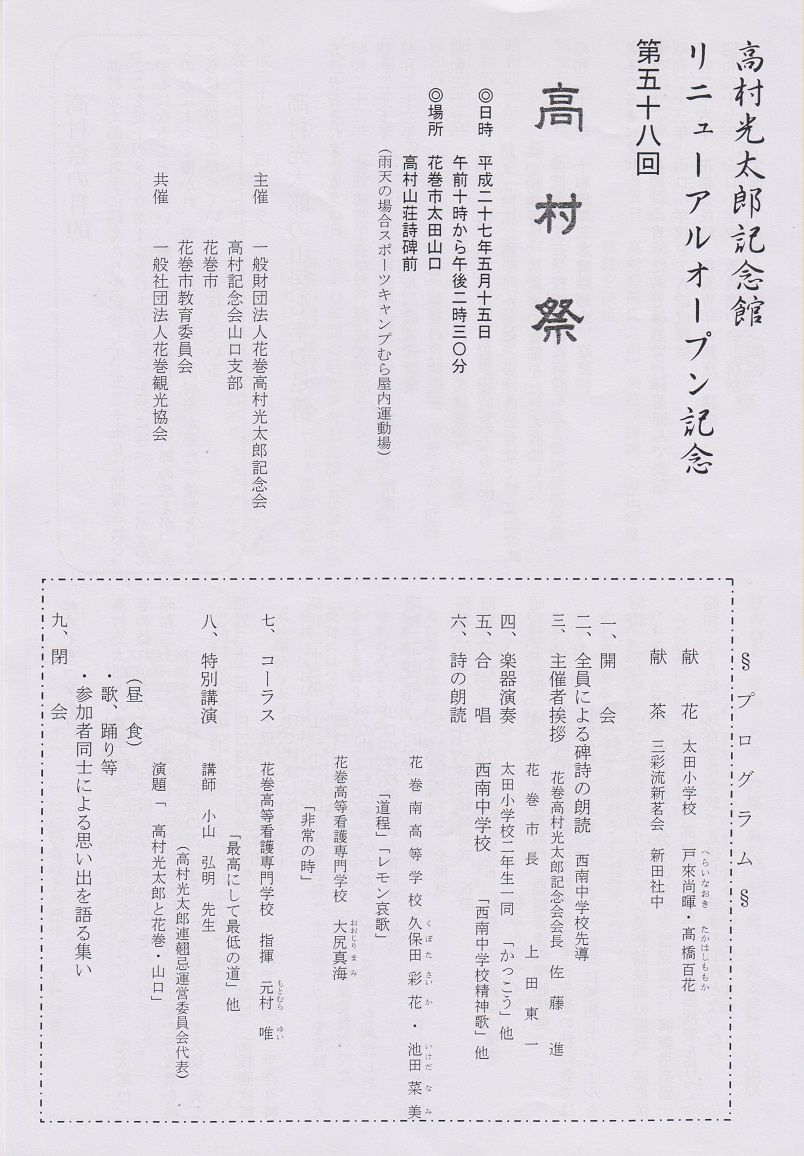 高村光太郎記念館
リニューアルオープン記念
第五十八回
高村祭
◎日時　平成二十七年五月十五日
午前十時から午後二時三〇分
◎場所　花巻市太田山口
高村山荘詩碑前
（雨天の場合スポーツキャンプむら屋内運動場）
主催　一般財団法人花巻高村光太郎記念会
高村記念会山口支部
花巻市
花巻市教育委員会
共催　一般社団法人花巻観光協会
§プログラム§
献　花　太田小学校　戸來尚暉・髙橋百花
へらいなおき　たかはしももか
献　茶　三彩流新茗会　新田社中
一、開　会
二、全員による碑詩の朗読　西南中学校先導
三、主催者挨拶　花巻高村光太郎記念会会長　佐藤　進
花巻市長　上田東一
四、楽器演奏　太田小学校二年生一同　「かっこう」他
五、合　唱　西南中学校　「西南中学校精神歌」他
六、詩の朗読
花巻南高等学校　久保田彩花・池田菜美
くぼた　さいか　いけだ　なみ
「道程」「レモン哀歌」
花巻高等看護専門学校　大尻真海
おおじり　まみ
「非常の時」
七、コーラス　花巻高等看護専門学校　指揮　元村　唯
もとむら　ゆい
「最高にして最低の道」他
八、特別講演　講師　小山　弘明　先生
（高村光太郎連翹忌運営委員会代表）
演題「　高村光太郎と花巻・山口」
（昼　食）
・歌、踊り等
・参加者同士による思い出を語る集い
九、閉　会